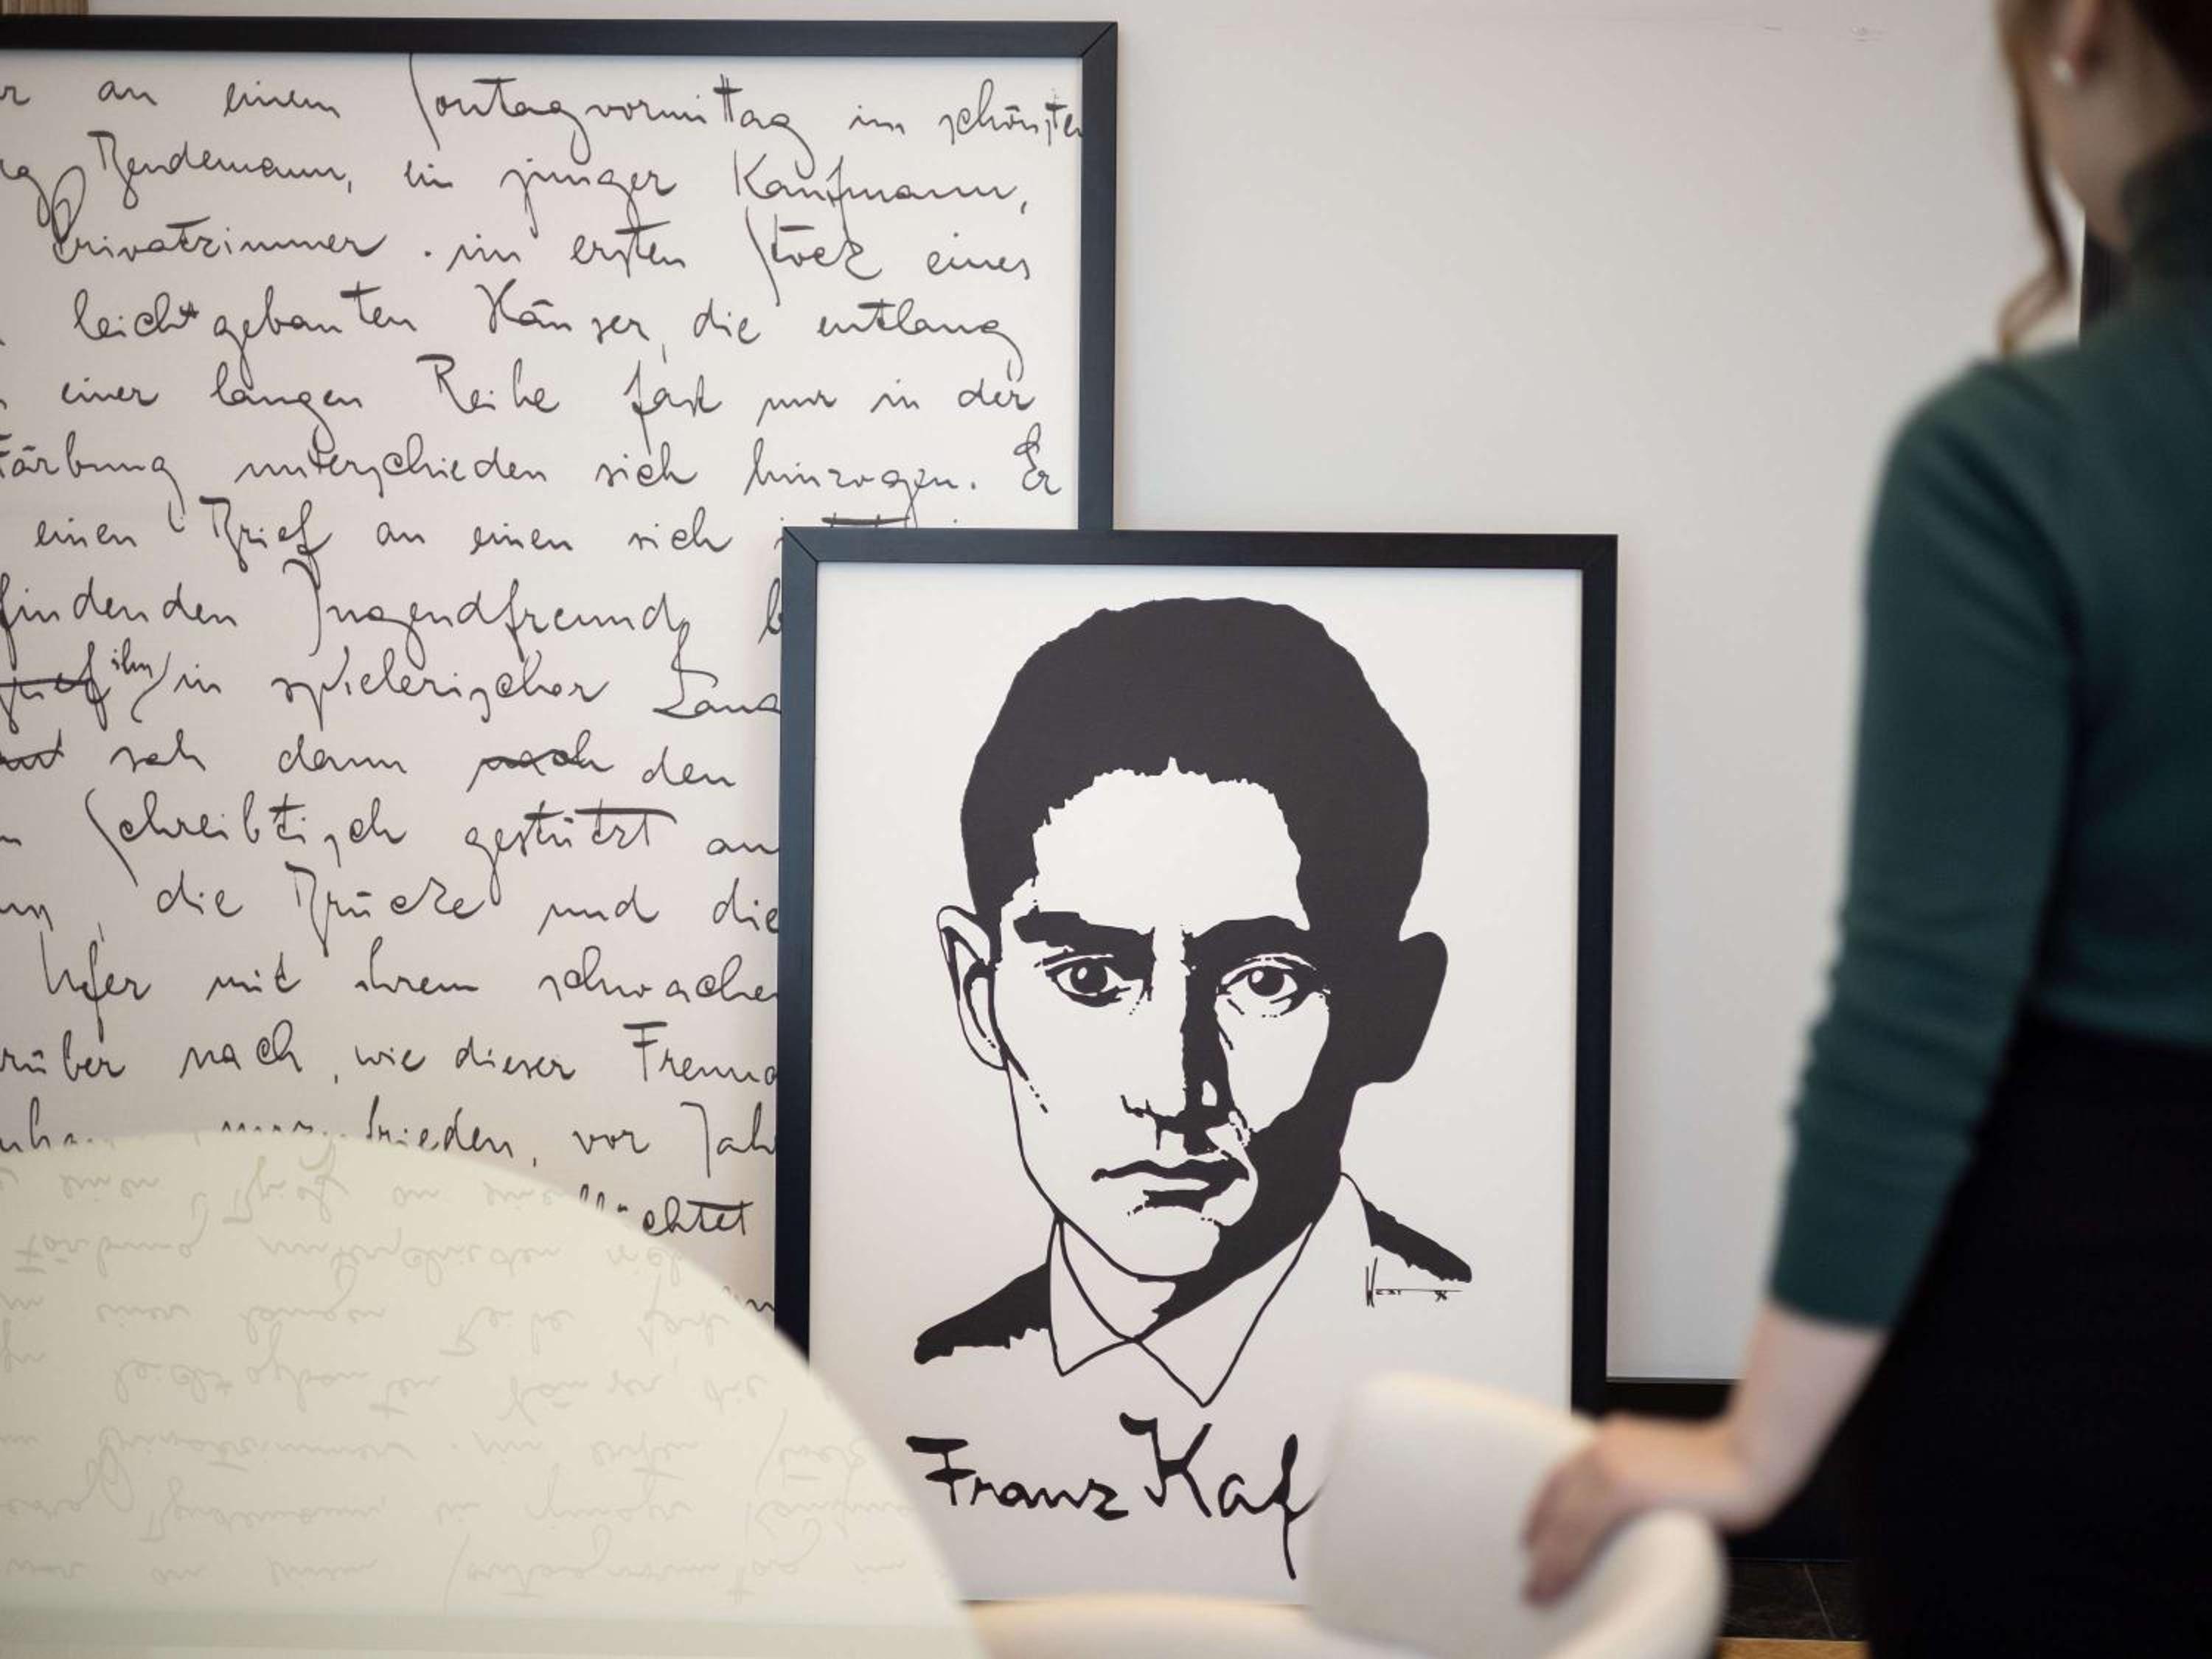 an einem Sontagvormittag im schönsten
Bendemann, ein junger Kaufmann,
Privatzimmer im ersten Stock eines
leichtgebauten Häuser, die entlang
einer langen Reihe fast nur in der
Färbung unterschieden sich hinzogen. Er
einen Brief an einen sich
findenden Jugendfreund
ihm in spielerischer Lang
sah dann nach den
Schreibtisch gestützt
die Brücke und die
Ufer mit ihrem schwachen
rüber nach, wie dieser Freund
frieden, vor Jah
üchtet
West
Franz Kaf